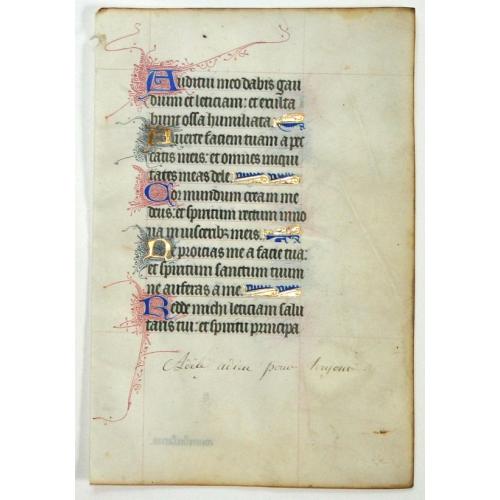 Auditui meo dabis gau
dium et leticiam: et exulta
bunt ossa humiliata.
Auerte faciem tuam a pec
catis meis: et omnes iniqui
tates meas dele.
Cor mundum crea in me
deus: et spiritum rectum inno
ua in visceribus meis.
Ne proicias me a facie tua:
et spiritum sanctum tuum
ne auferas a me.
Redde michi leticiam salu
taris tui: et spiritu principa
adieu pour toujours